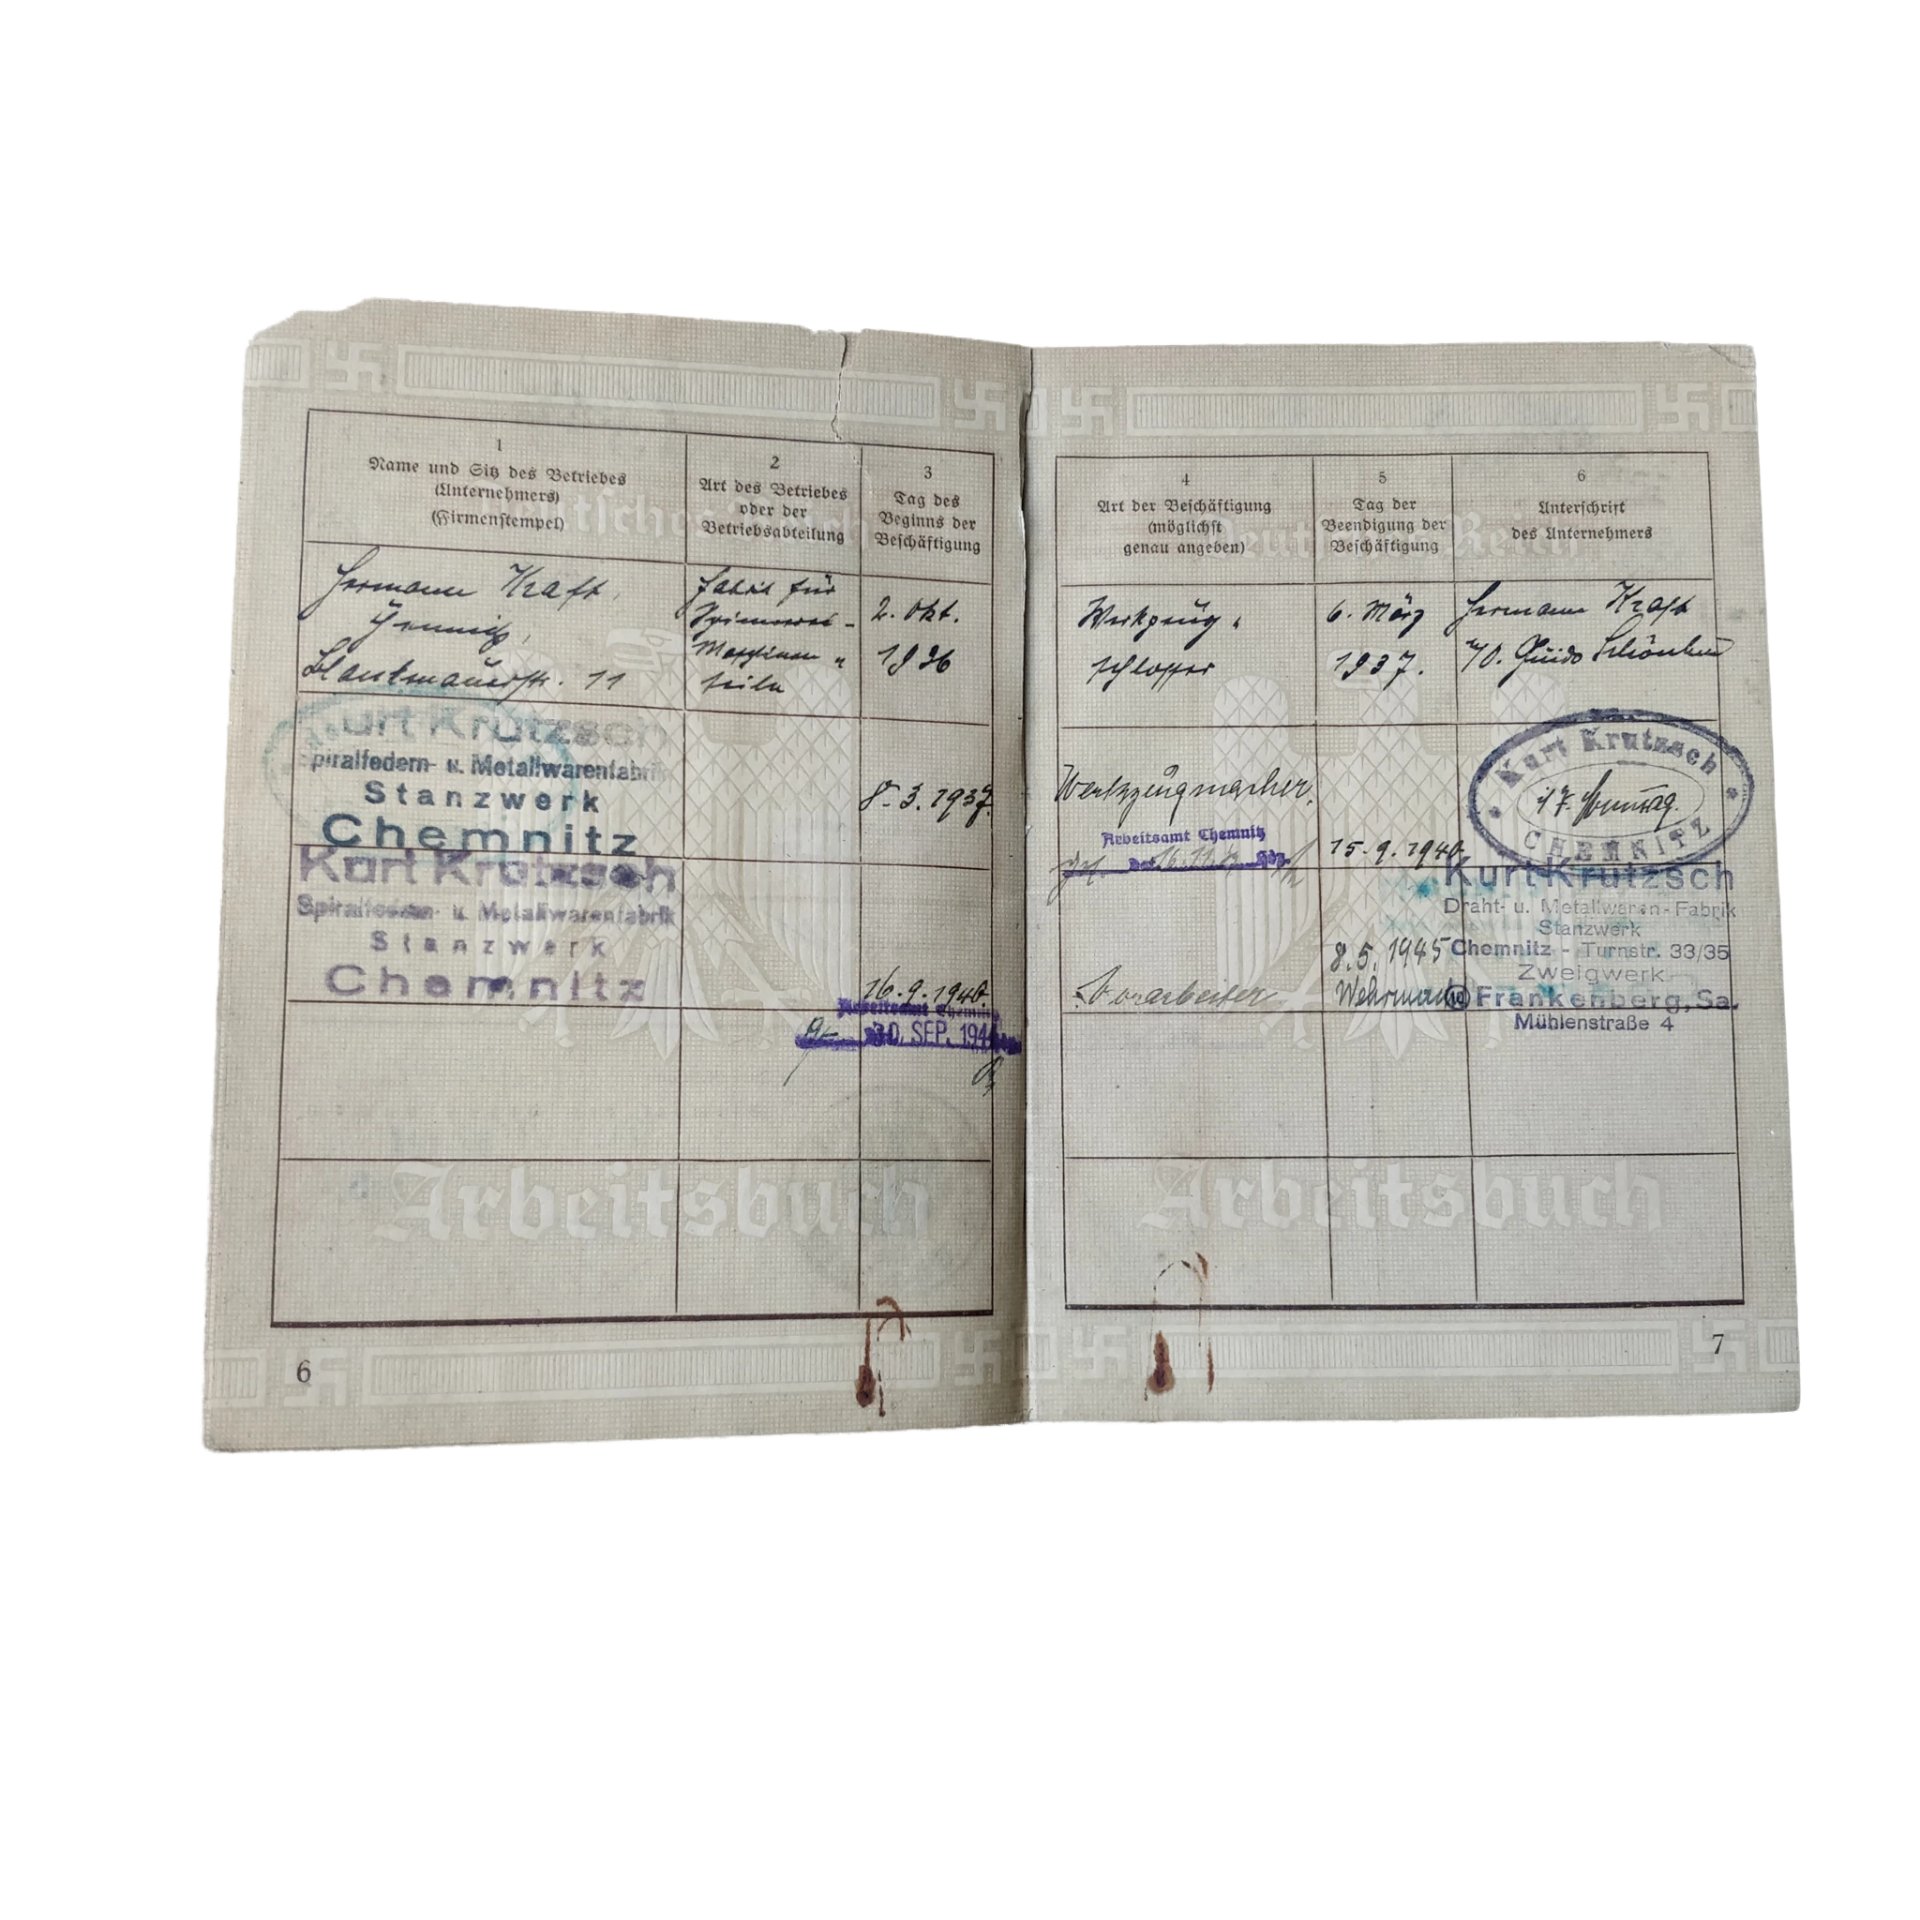 1
Name und Sitz des Betriebes
(Unternehmers)
(Firmenstempel)
2
Art des Betriebes
oder der
Betriebsabteilung
3
Tag des
Beginns der
Beschäftigung
Hermann Kraft,
Chemnitz,
11
Fabrik für
Spinnerei-
Maschinen-
teile
2. Okt.
1936
Kurt Krutzsch
Spiralfedern- u. Metallwarenfabrik
Stanzwerk
Chemnitz
8.3.1937.
Kurt Krutzsch
Spiralfedern- u. Metallwarenfabrik
Stanzwerk
Chemnitz
16.9.1940.
Arbeitsamt Chemnitz
30. SEP. 194
Arbeitsbuch
6
4
Art der Beschäftigung
(möglichst
genau angeben)
5
Tag der
Beendigung der
Beschäftigung
6
Unterschrift
des Unternehmers
Deutsches Reich
Werkzeug-
schlosser
6. März
1937.
Hermann Kraft
Guido
Werkzeugmacher.
Arbeitsamt Chemnitz
15.9.1940
Kurt Krutzsch
CHEMNITZ
Vorarbeiter
8.5.1945
Kurt Krutzsch
Draht- u. Metallwaren-Fabrik
Stanzwerk
Chemnitz - Turnstr. 33/35
Zweigwerk
Frankenberg, Sa.
Mühlenstraße 4
Arbeitsbuch
7